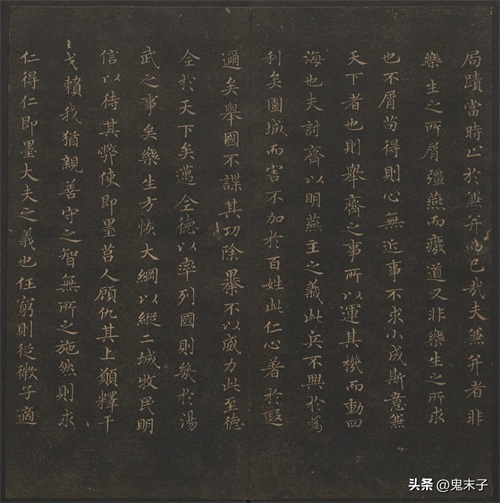 局蹟當時止於兼并而已哉夫兼并者非
樂生之所屑彊燕而廢道又非樂生之所求
也不屑苟得則心無近事不求小成斯意兼
天下者也則舉齊之事所以運其機而動四
海也夫討齊以明燕主之義此兵不興於為
利矣圍城而害不加於百姓此仁心著於遐
邇矣舉國不謀其功除暴不以威力此至德
全於天下矣邁全德以率列國則幾於湯
武之事矣樂生方恢大綱以縱二城牧民明
信以待其弊使即墨莒人顧仇其上願釋干
戈賴我猶親善守之智無所之施然則求
仁得仁即墨大夫之義也任窮則從微子適
头条 @鬼末子